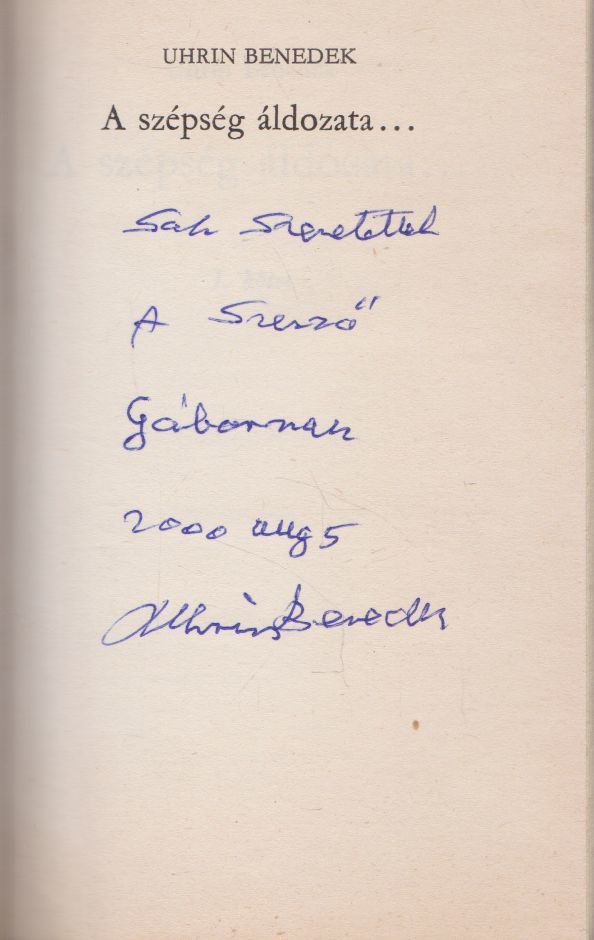 UHRIN BENEDEK
A szépség áldozata...
Sok Szeretettel
A Szerző
Gábornak
2000 aug 5
Uhrin Benedek